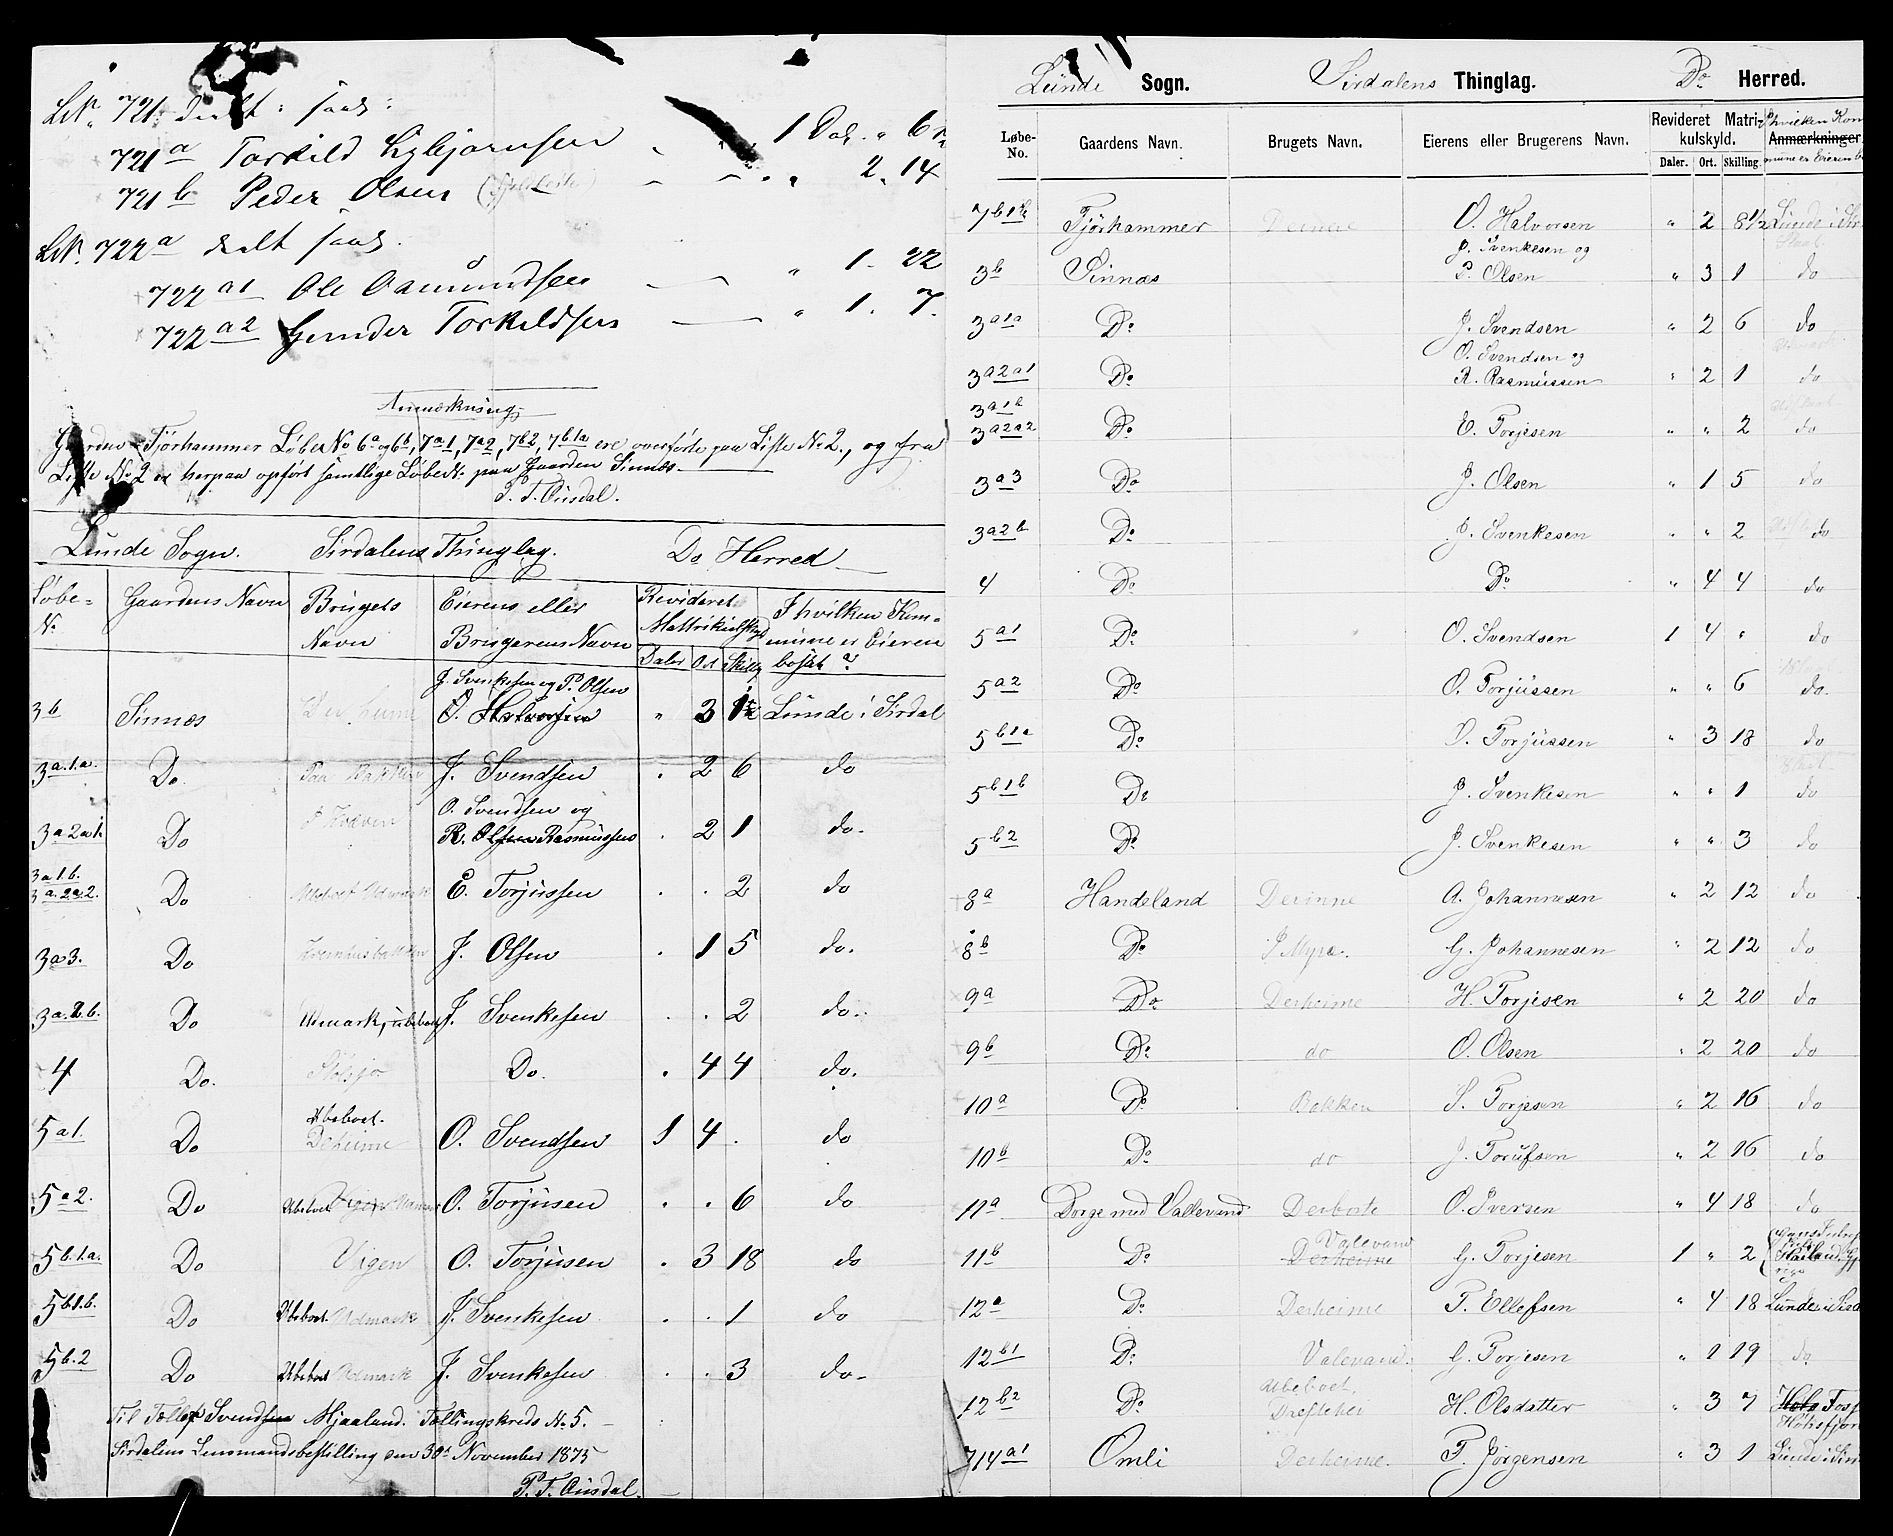 LN. 721. deelt: saad:
721a Torkild Eybjørnsen 1 Dal. " 6
721b Peder Olsen " 2. 14
LN. 722a deelt saad.
722a1 Ole Aamundsen " 1. 22
722a2 Gunder Torkildsen " 1. 7.
Anmærkning
Gaarden Tjörhammer Löbe No 6a og 6b, 7a1, 7a2, 7b2, 7b1a ere overförte paa Liste No 2., og fra
Liste No 2 er herpaa opfört samtlige LöbeN. paa Gaarden Sinnæs.
P. T. Ousdal.
Lunde Sogn. Sirdalens Thinglag. Do Herred
Löbe-No. Gaardens Navn Brugets Navn Eierens eller Brugerens Navn Revideret Matrikulskyld Daler Ort Skilling I hvilken Kommune er Eieren bosat?
3b Sinnæs J. Svenkesen og P. Olsen O. Halvorsen " 3 1 Lunde i Sirdal
3a.1.a. Do Paa Bakken J. Svendsen . 2 6 do
3a2a1. Do O. Svendsen og R. Olsen Rasmussen . 2 1 do.
3a1b. 3a.2a.2. Do Ubeboet Udmark E. Torjussen . . 2 do
3a3. Do J. Olsen . 1 5 do.
3a.2.b. Do Udmark, ubeboet J. Svenkesen . . 2 do.
4 Do. Do. . 4 4 do.
5a1. Do Ubeboet. Deheime O. Svendsen 1 4 . do
5a2. Do Ubeboet O. Torjusen . . 6 do
5b.1.a. Do Vigen O. Torjusen . 3 18 do
5b.1.b. Do Ubeboet Udmark J. Svenkesen . . 1 do
5b.2 Do Ubeboet Udmark J. Svenkesen . . 3 do
Til Tollef Svendsen Mjaaland. Tællingskreds No 5.
Sirdalens Lensmandsbestilling den 30te November 1875
P. T. Ousdal.
Lunde Sogn. Sirdalens Thinglag. Do Herred.
Løbe-No. Gaardens Navn. Brugets Navn. Eierens eller Brugerens Navn. Revideret Matrikulskyld. Daler. Ort. Skilling. Anmærkninger. I hvilken Kommune er Eieren
7b1b Tjörhammer Deinne O. Halvorsen " 2 8½ Lunde i Sir
3b Sinnæs J. Svenkesen og P. Olsen " 3 1 do
3a1a Do J. Svendsen " 2 6 do
3a2a1 Do O. Svendsen og R. Rasmussen " 2 1 do
3a1b 3a2a2 Do E. Torjesen " " 2 do
3a3 Do J. Olsen " 1 5 do
3a2b Do J. Svenkesen " " 2 do
4 Do Do " 4 4 do
5a1 Do O. Svendsen 1 4 " do
5a2 Do O. Torjussen " " 6 do.
5b1a Do O. Torjussen " 3 18 do
5b1b Do J. Svenkesen " " 1 do
5b2 Do J. Svenkesen " " 3 do
8a Handeland Derinne A. Johannesen " 2 12 do
8b Do I Myra. G. Johannesen " 2 12 do
9a Do Derheime H. Torjesen " 2 20 do
9b Do do O. Olsen " 2 20 do
10a Do Bakken S. Torjesen " 2 16 do
10b Do do J. Torufsen " 2 16 do
11a Dorge med Vallevand Derborte O. Iversen " 4 18 do
11b Do Valevand Derheime G. Torjesen 1 " 2
12a Do Derheime T. Ellefsen " 4 18 Lunde i Sird
12b1 Do Valevand. G. Torjesen " 1 19 do
12b2 Do Ubeboet, H. Olsdatter " 3 7
14a1 Omli Derheime. T. Jörgensen " 3 1 Lunde i Sir